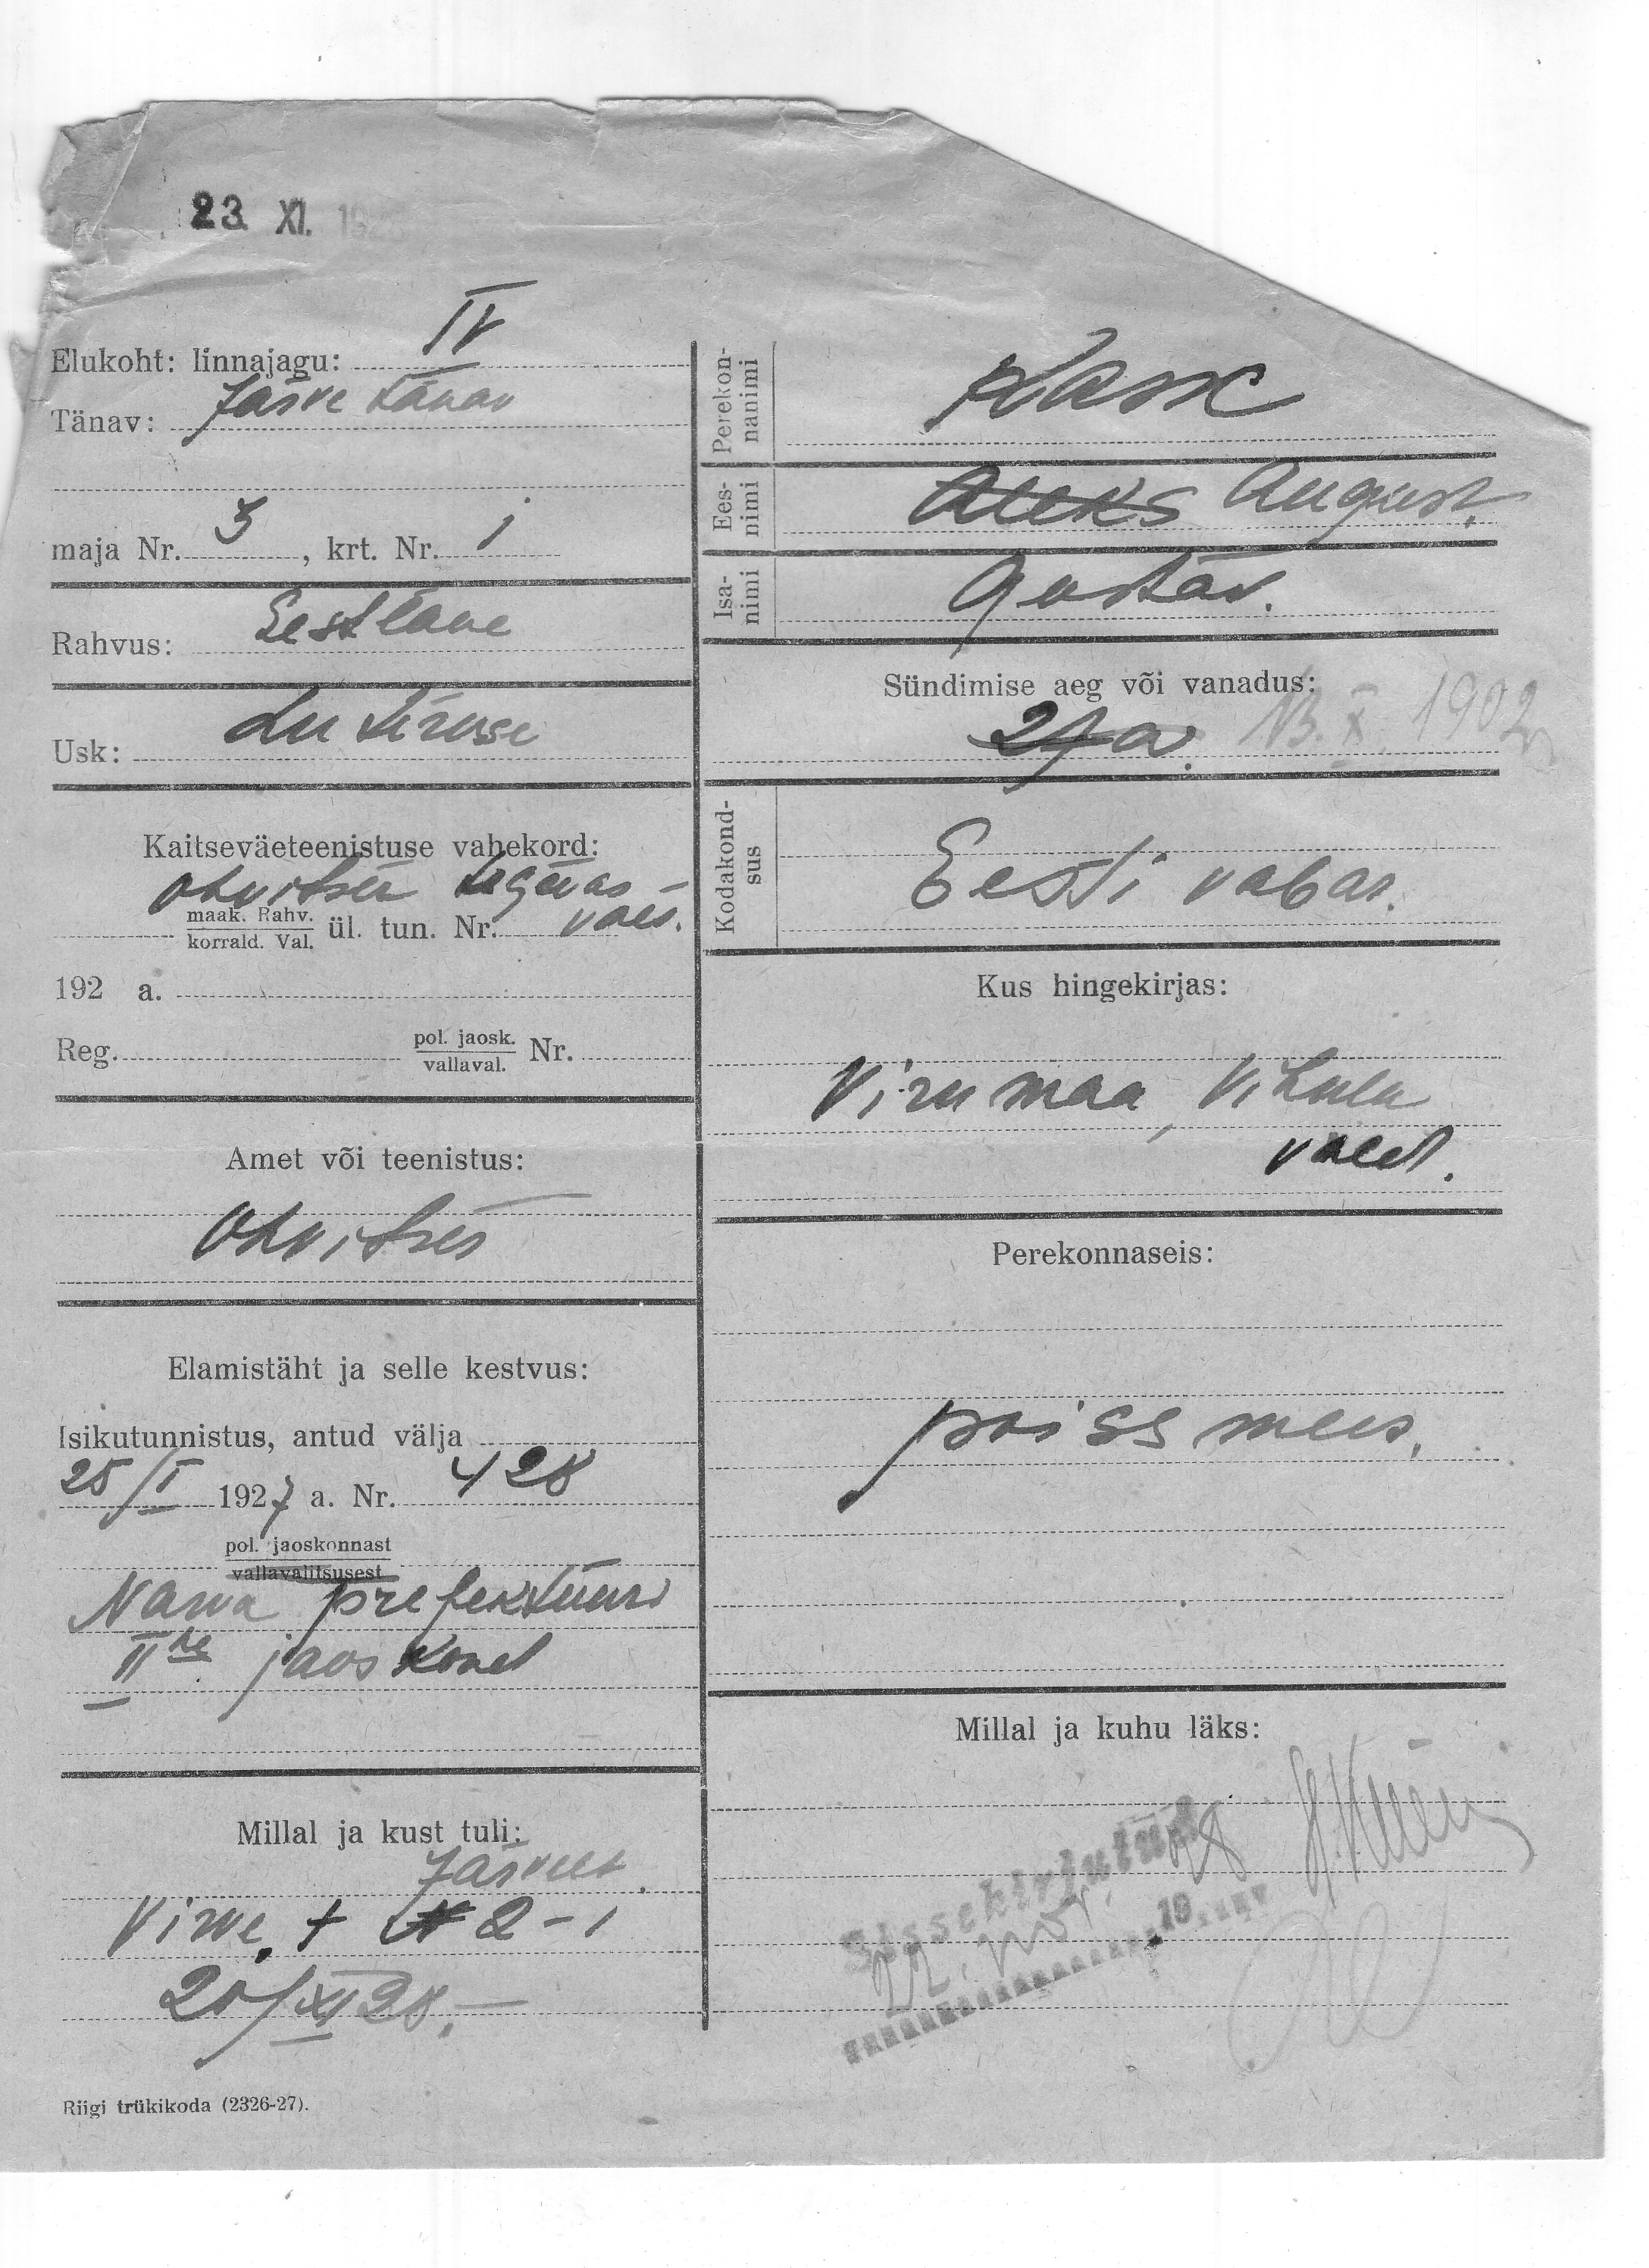 23. XI. 192
Elukoht: linnajagu: IV
Tänav: Järve tänav
maja Nr. 3, krt. Nr. 1
Rahvus: Eestlane
Usk: Luteruse
Kaitseväeteenistuse vahekord:
ohvitser tegevas-
maak. Rahv.
korrald. Val. ül. tun. Nr. väes.
192 a.
Reg. pol. jaosk.
vallaval. Nr.
Amet või teenistus:
Ohvitser
Elamistäht ja selle kestvus:
Isikutunnistus, antud välja
25/I 1927 a. Nr. 428
pol. jaoskonnast
vallavalitsusest
Narva prefektuuri
II se jaoskond
Millal ja kust tuli:
Järvelt.
Viru. t 2-1
20/XI 28.-
Riigi trükikoda (2326-27).
Perekon-
nanimi
Kask
Ees-
nimi
Aleks August.
Isa-
nimi
Gustav.
Sündimise aeg või vanadus:
27 a. 13. X. 1902
Kodakond-
sus
Eesti vabar.
Kus hingekirjas:
Virumaa, Vihula
vald.
Perekonnaseis:
poissmees.
Millal ja kuhu läks:
Sissekirjutud
22. nov. 28
19